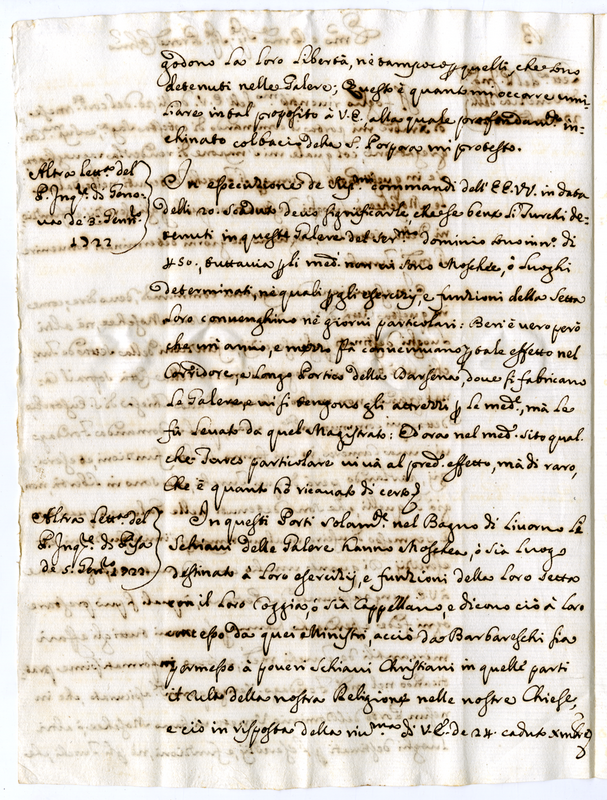 godono la loro libertà, nè tampoco p quelli, che sono
detenuti nelle Galere; Questo è quanto mi occorre umi-
liare in tal proposito à V. E., alla quale profondam.te in-
chinato col bacio della S. Porpora mi protesto.
Altra lett.a del
P. Inq.r di Geno-
va de 3. Genn.o
1722
In esecuzione de commandi dell' EE. VV. in data
delli 20. scaduto devo significarle, che se bene li Turchi de-
tenuti in queste Galere del Ser.mo Dominio sono in n.o di
450., tuttavia p gli med.i non vi sono Moschee, ò luoghi
determinati, nè quali p gli esercizij, e funzioni della Setta
loro convenghino nè giorni particolari: Ben è vero però
che, un anno, e mezzo fà convenivano p tale effetto nel
Corridore, e longo Portico della Darsena, dove si fabricano
le Galere, e vi si tengono gli attrezzi p le med.e, mà le
fù levato da quel Magistrato: Ed ora nel med.o sito qual-
che Turco particolare vi và al pred.o effetto, mà di raro,
che è quanto hò ricavato di certo
Altra lett.a del
P. Inq.r di Pisa
de 5. Gen.o 1722.
In questi Porti solam.te nel Bagno di Livorno li
Schiavi delle Galere hanno Moschea, ò sia luogo
destinato à loro esercizij, e funzioni della loro setta
con il loro Coggia, ò sia Cappellano, e dicono ciò à loro
concesso da quei Ministri, acciò da Barbareschi sia
permesso à poveri Schiavi Christiani in quelle parti
il culto della nostra Religione nelle nostre Chiese,
e ciò in risposta della di V. E. de 24. caduto Xmbre